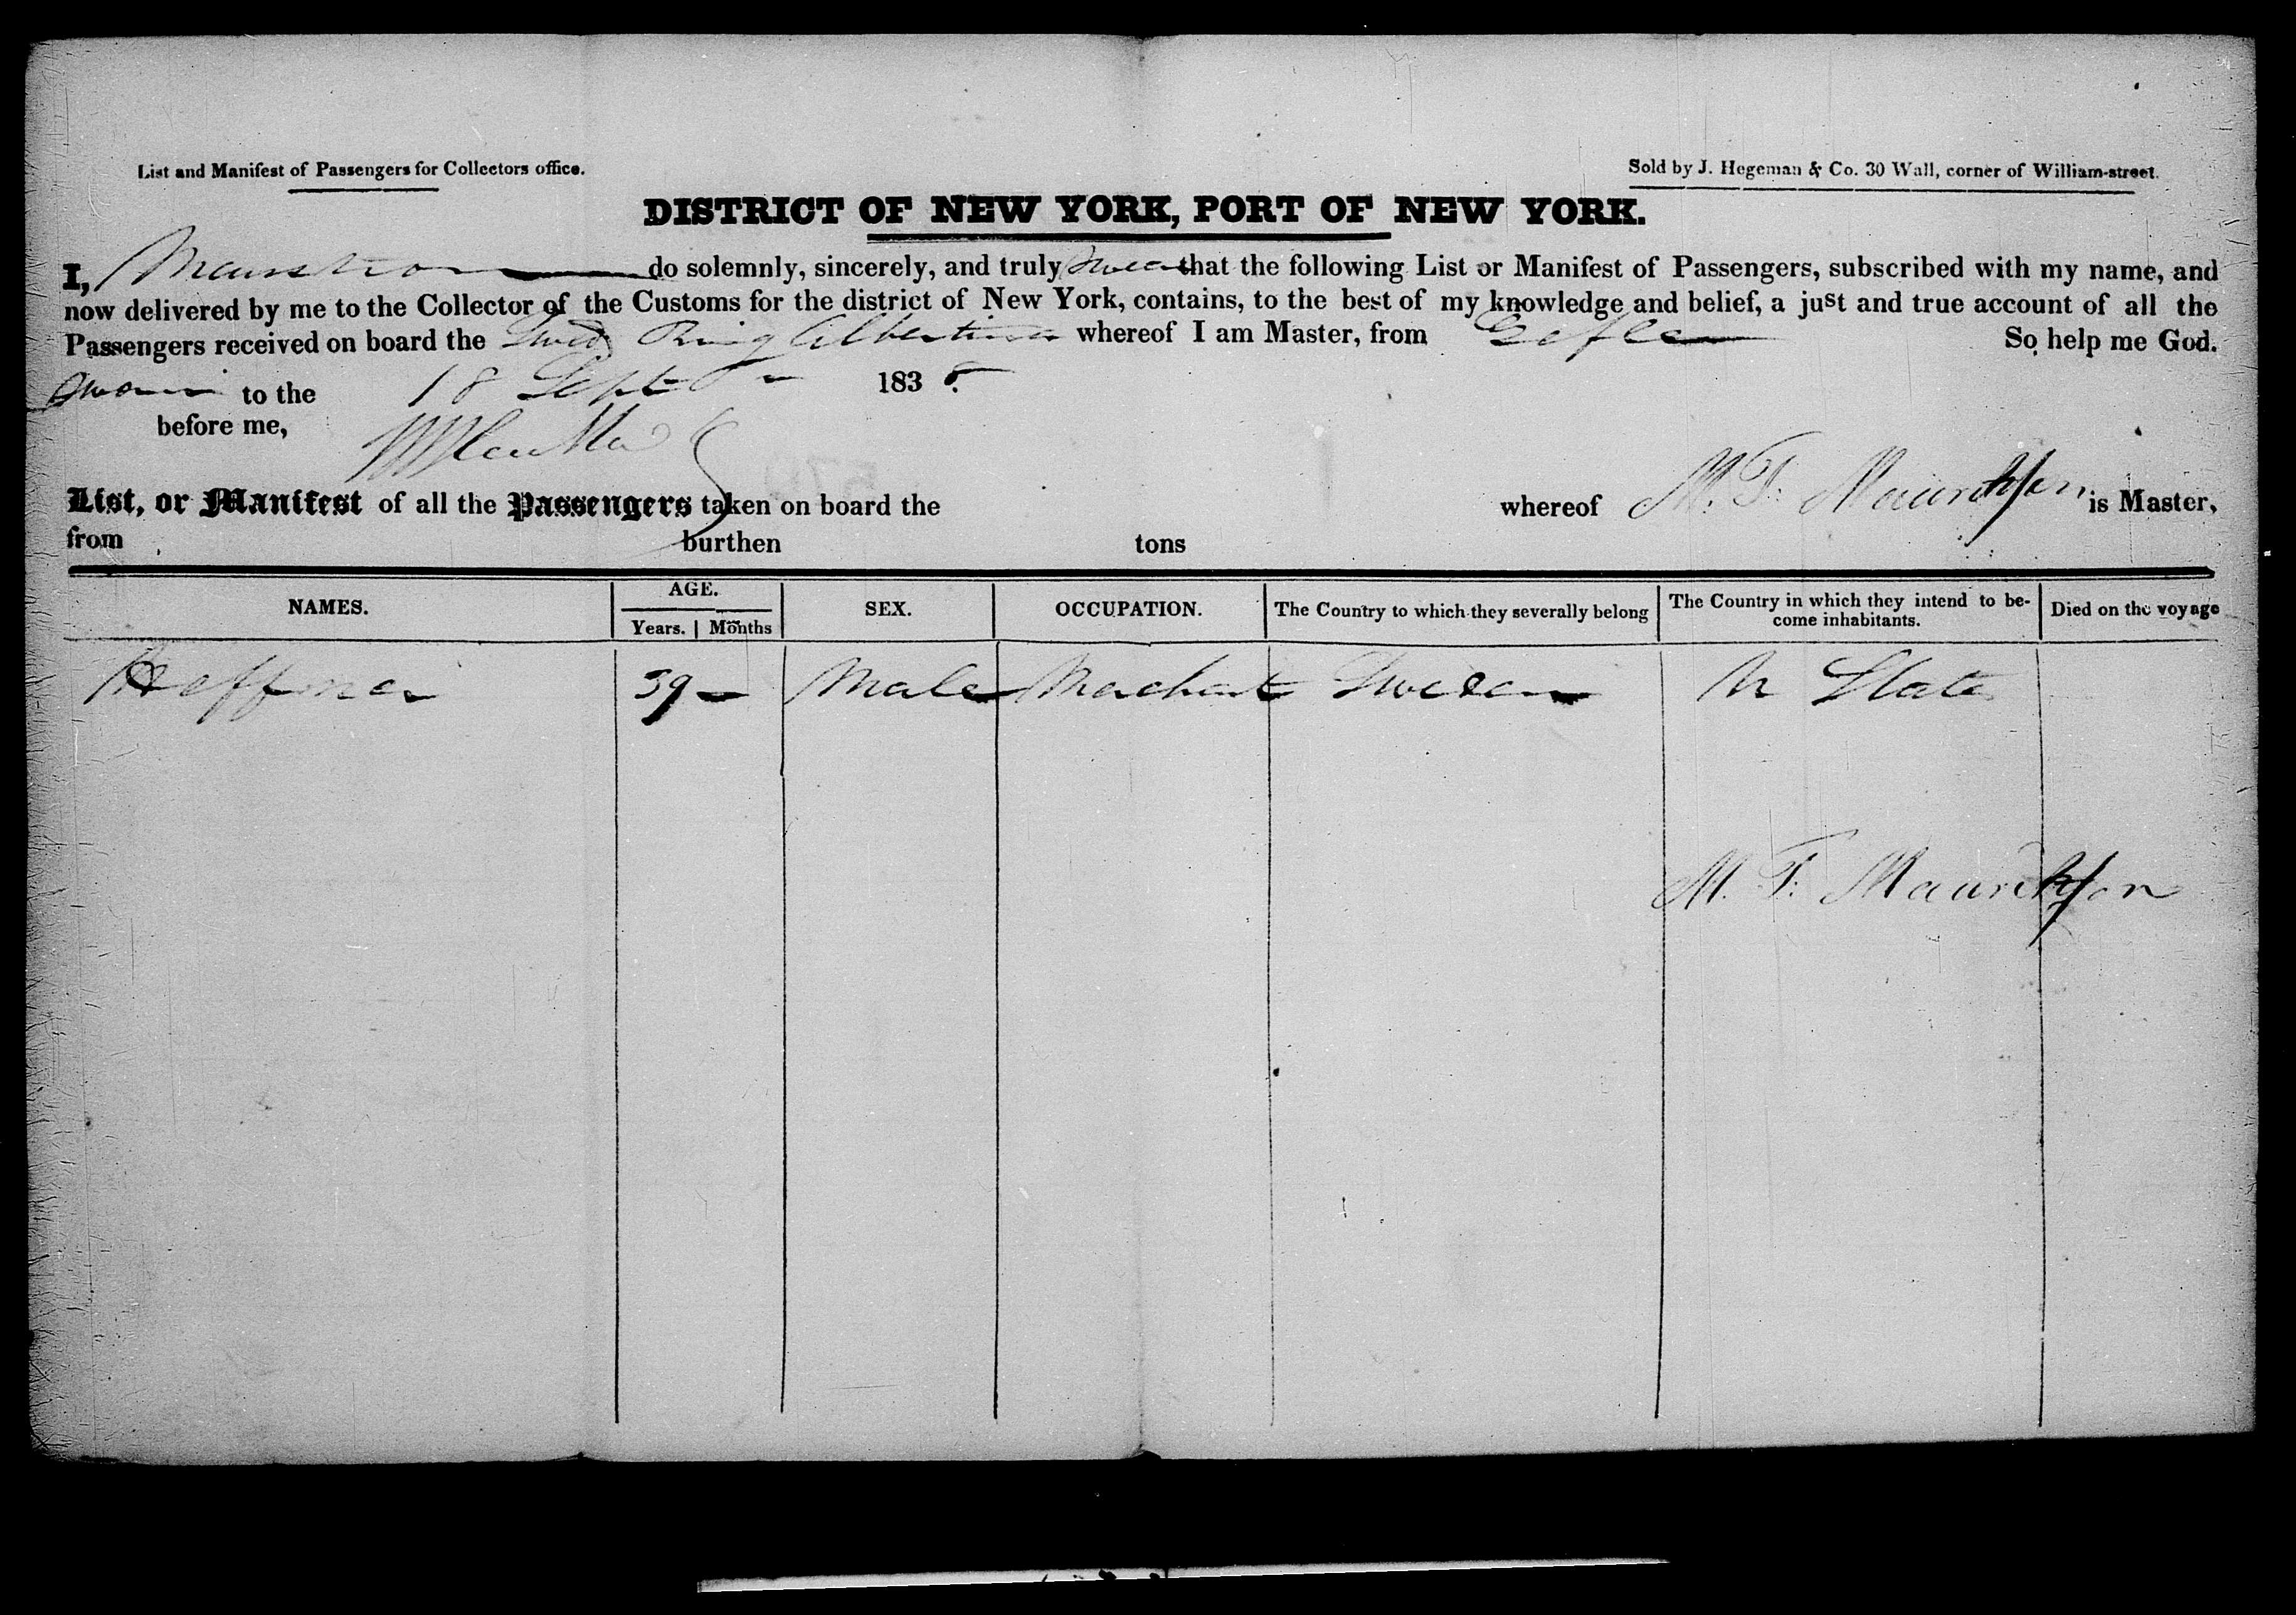 List and Manifest of Passengers for Collectors office.
Sold by J. Hegeman & Co. 30 Wall, corner of William-street.
DISTRICT OF NEW YORK, PORT OF NEW YORK.
I, do solemnly, sincerely, and truly swear that the following List or Manifest of Passengers, subscribed with my name, and
now delivered by me to the Collector of the Customs for the district of New York, contains, to the best of my knowledge and belief, a just and true account of all the
Passengers received on board the Swed Brig Albertina whereof I am Master, from Gefle So help me God.
Sworn to the 18 Sept 1838.
before me,
List, or Manifest of all the Passengers taken on board the whereof M. F. Mauritzson is Master,
from burthen tons
NAMES. AGE. SEX. OCCUPATION. The Country to which they severally belong The Country in which they intend to be- Died on the voyage
Years. Months come inhabitants.
Hoffman 39 Male Merchant Sweden U State
M. F. Mauritzson